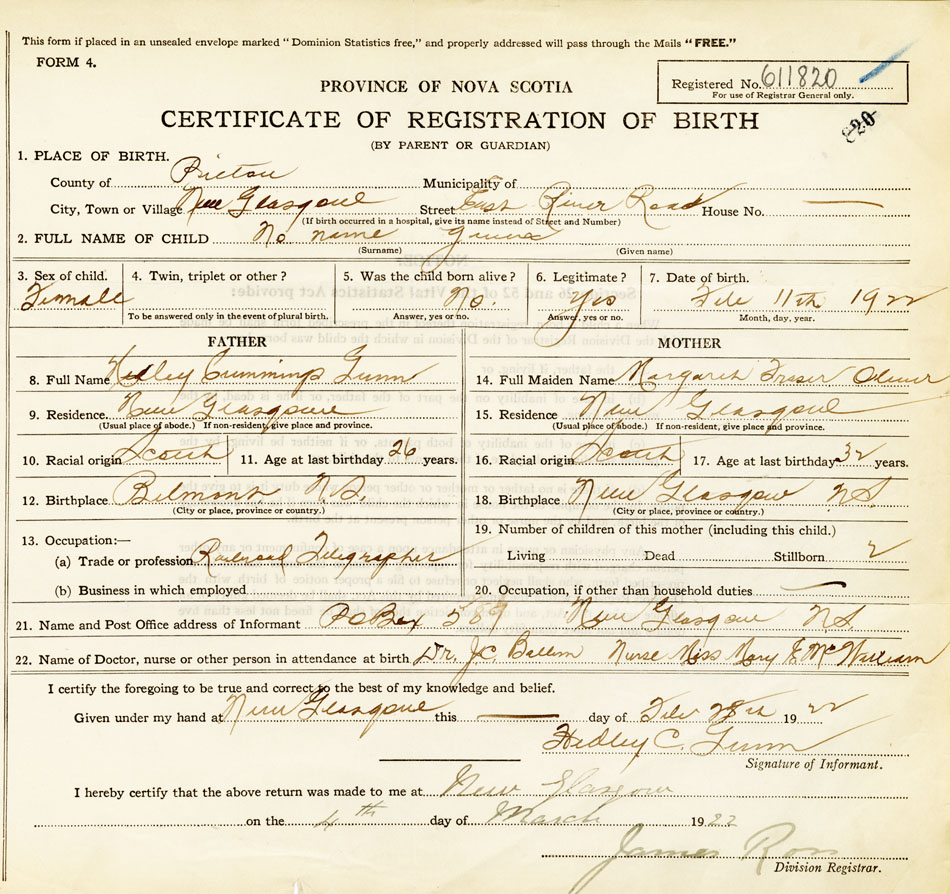 This form if placed in an unsealed envelope marked "Dominion Statistics free," and properly addressed will pass through the Mails "FREE."
FORM 4.
Registered No. 611820
For use of Registrar General only.
PROVINCE OF NOVA SCOTIA
CERTIFICATE OF REGISTRATION OF BIRTH
820
(BY PARENT OR GUARDIAN)
1. PLACE OF BIRTH.
County of Pictou Municipality of
City, Town or Village New Glasgow Street East River Road House No. —
(If birth occurred in a hospital, give its name instead of Street and Number)
2. FULL NAME OF CHILD No name Gunn
(Surname) (Given name)
3. Sex of child. 4. Twin, triplet or other? 5. Was the child born alive? 6. Legitimate? 7. Date of birth.
Female No. Yes Feb 11th 1922
To be answered only in the event of plural birth. Answer, yes or no. Answer, yes or no. Month, day, year.
FATHER MOTHER
8. Full Name Hedley Cummings Gunn 14. Full Maiden Name Margaret Fraser Oliver
9. Residence. New Glasgow 15. Residence New Glasgow
(Usual place of abode.) If non-resident, give place and province. (Usual place of abode.) If non-resident, give place and province.
10. Racial origin Scotch 11. Age at last birthday 26 years. 16. Racial origin Scotch 17. Age at last birthday 32 years.
12. Birthplace Belmont N.S. 18. Birthplace New Glasgow NS
(City or place, province or country.) (City or place, province or country.)
13. Occupation:— 19. Number of children of this mother (including this child.)
(a) Trade or profession Railroad Telegrapher Living Dead Stillborn 2
(b) Business in which employed 20. Occupation, if other than household duties —
21. Name and Post Office address of Informant P O Box 589 New Glasgow NS
22. Name of Doctor, nurse or other person in attendance at birth Dr. J.C. Ballem Nurse Miss Mary E. McWilliam
I certify the foregoing to be true and correct to the best of my knowledge and belief.
Given under my hand at New Glasgow this — day of Feb 28th 1922
Hedley C. Gunn
Signature of Informant.
I hereby certify that the above return was made to me at New Glasgow
on the 4th day of March 1922
James Ross
Division Registrar.